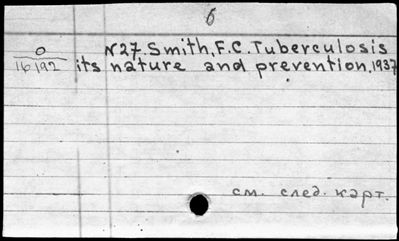 6
0 N27. Smith, F.C. Tuberculosis
16192 its nature and prevention, 1937
см. след. карт.